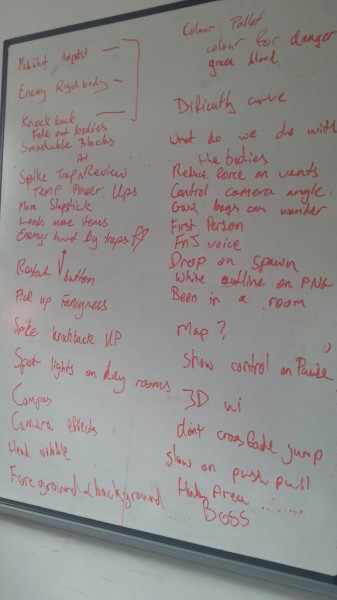 Adjust
Enemy Rigidbody
Knock back
Fade out bodies
Smashable Blocks
Art
Spike Trap Review
Temp Power Ups
More Slapstick
Leads more items
Enemys hurt by traps
Restart button
Pick up fancyness
Spike knockback UP
Spot lights on key rooms
Compass
Camera effects
Head wobble
Foreground & background
Colour Pallet
colour for danger
green blood
Dificulty curve
what do we do with
the bodies
Reduce force on wands
Control camera angle
bags can wander
First Person
voice
Drop on spawn
White outline on PNK
Been in a room
Map?
Show control on Pause
3D ui
dont crossfade jump
slow on push pull
Hub Area ......
Boss